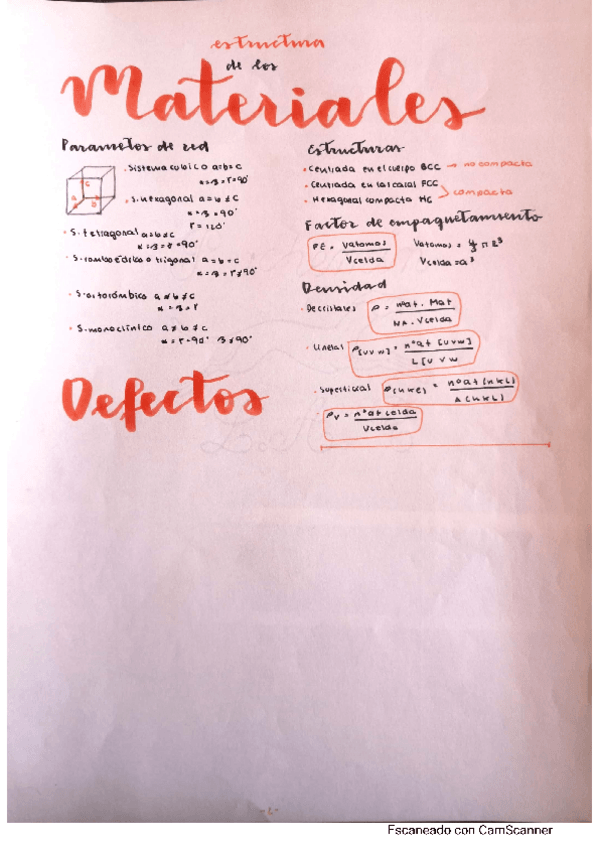 estructura
de los
Materiales
Parametos de red
• Sistema cubico a=b=c
α=β=γ=90°
• S. hexagonal a=b≠c
α=β=90°
γ=120°
• S. tetragonal a=b≠c
α=β=γ=90°
• S. romboédrico o trigonal a=b=c
α=β=γ≠90°
• S. ortorómbico a≠b≠c
α=β=γ
• S. monoclínico a≠b≠c
α=γ=90° β≠90°
Defectos
Estructuras
• Centrada en el cuerpo BCC → no compacta
• Centrada en las caras FCC
• Hexagonal compacta HC
compacta
Factor de empaquetamiento
FE = Vatomos / Vcelda
Vcelda = a³
Densidad
• De cristales ρ = nºat . Mat / NA . Vcelda
• Lineal ρ[uvw] = nºat [uvw] / L[uvw
• Superficial ρ(hkl) = nºat (hkl) / A(hkl)
• ρv = nºat celda / Vcelda
Escaneado con CamScanner